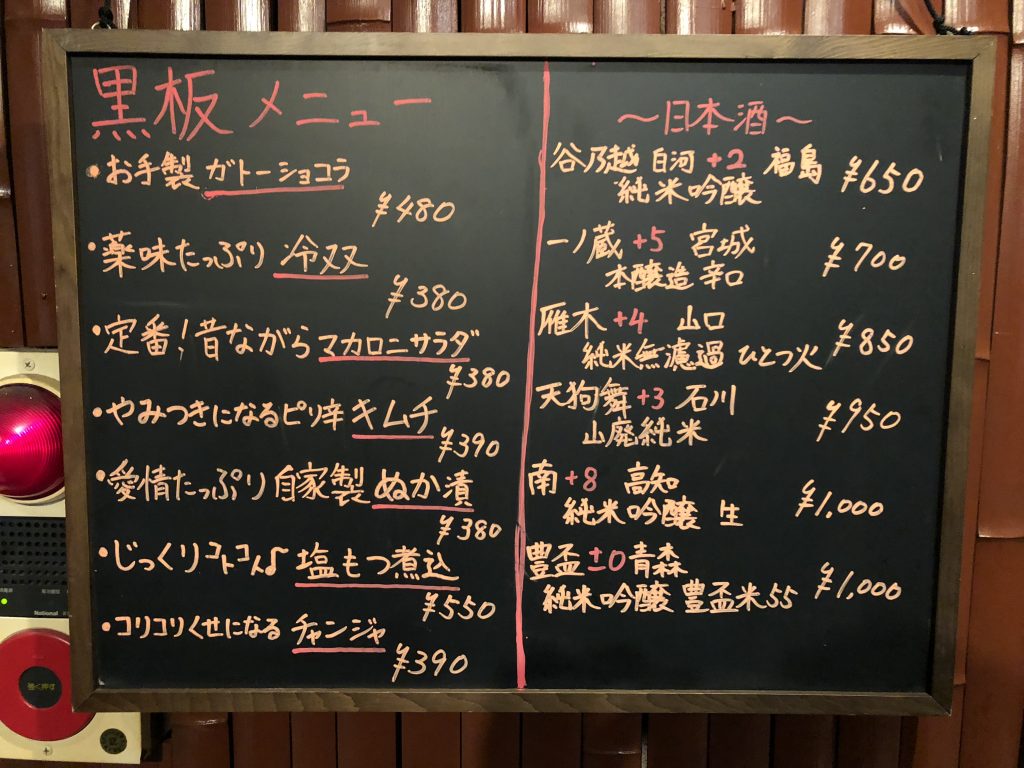 黒板メニュー
・お手製 ガトーショコラ
¥480
・薬味たっぷり 冷奴
¥380
・定番!昔ながら マカロニサラダ
¥380
・やみつきになるピリ辛 キムチ
¥390
・愛情たっぷり 自家製 ぬか漬
¥380
・じっくりコトコト♪ 塩もつ煮込
¥550
・コリコリくせになる チャンジャ
¥390
〜日本酒〜
谷乃越 白河 +2 福島 ¥650
純米吟醸
一ノ蔵 +5 宮城 ¥700
本醸造 辛口
雁木 +4 山口 ¥850
純米無濾過 ひとつ火
天狗舞 +3 石川 ¥950
山廃純米
南 +8 高知 ¥1,000
純米吟醸 生
豊盃 ±0 青森 ¥1,000
純米吟醸 豊盃米55
National
強く押す